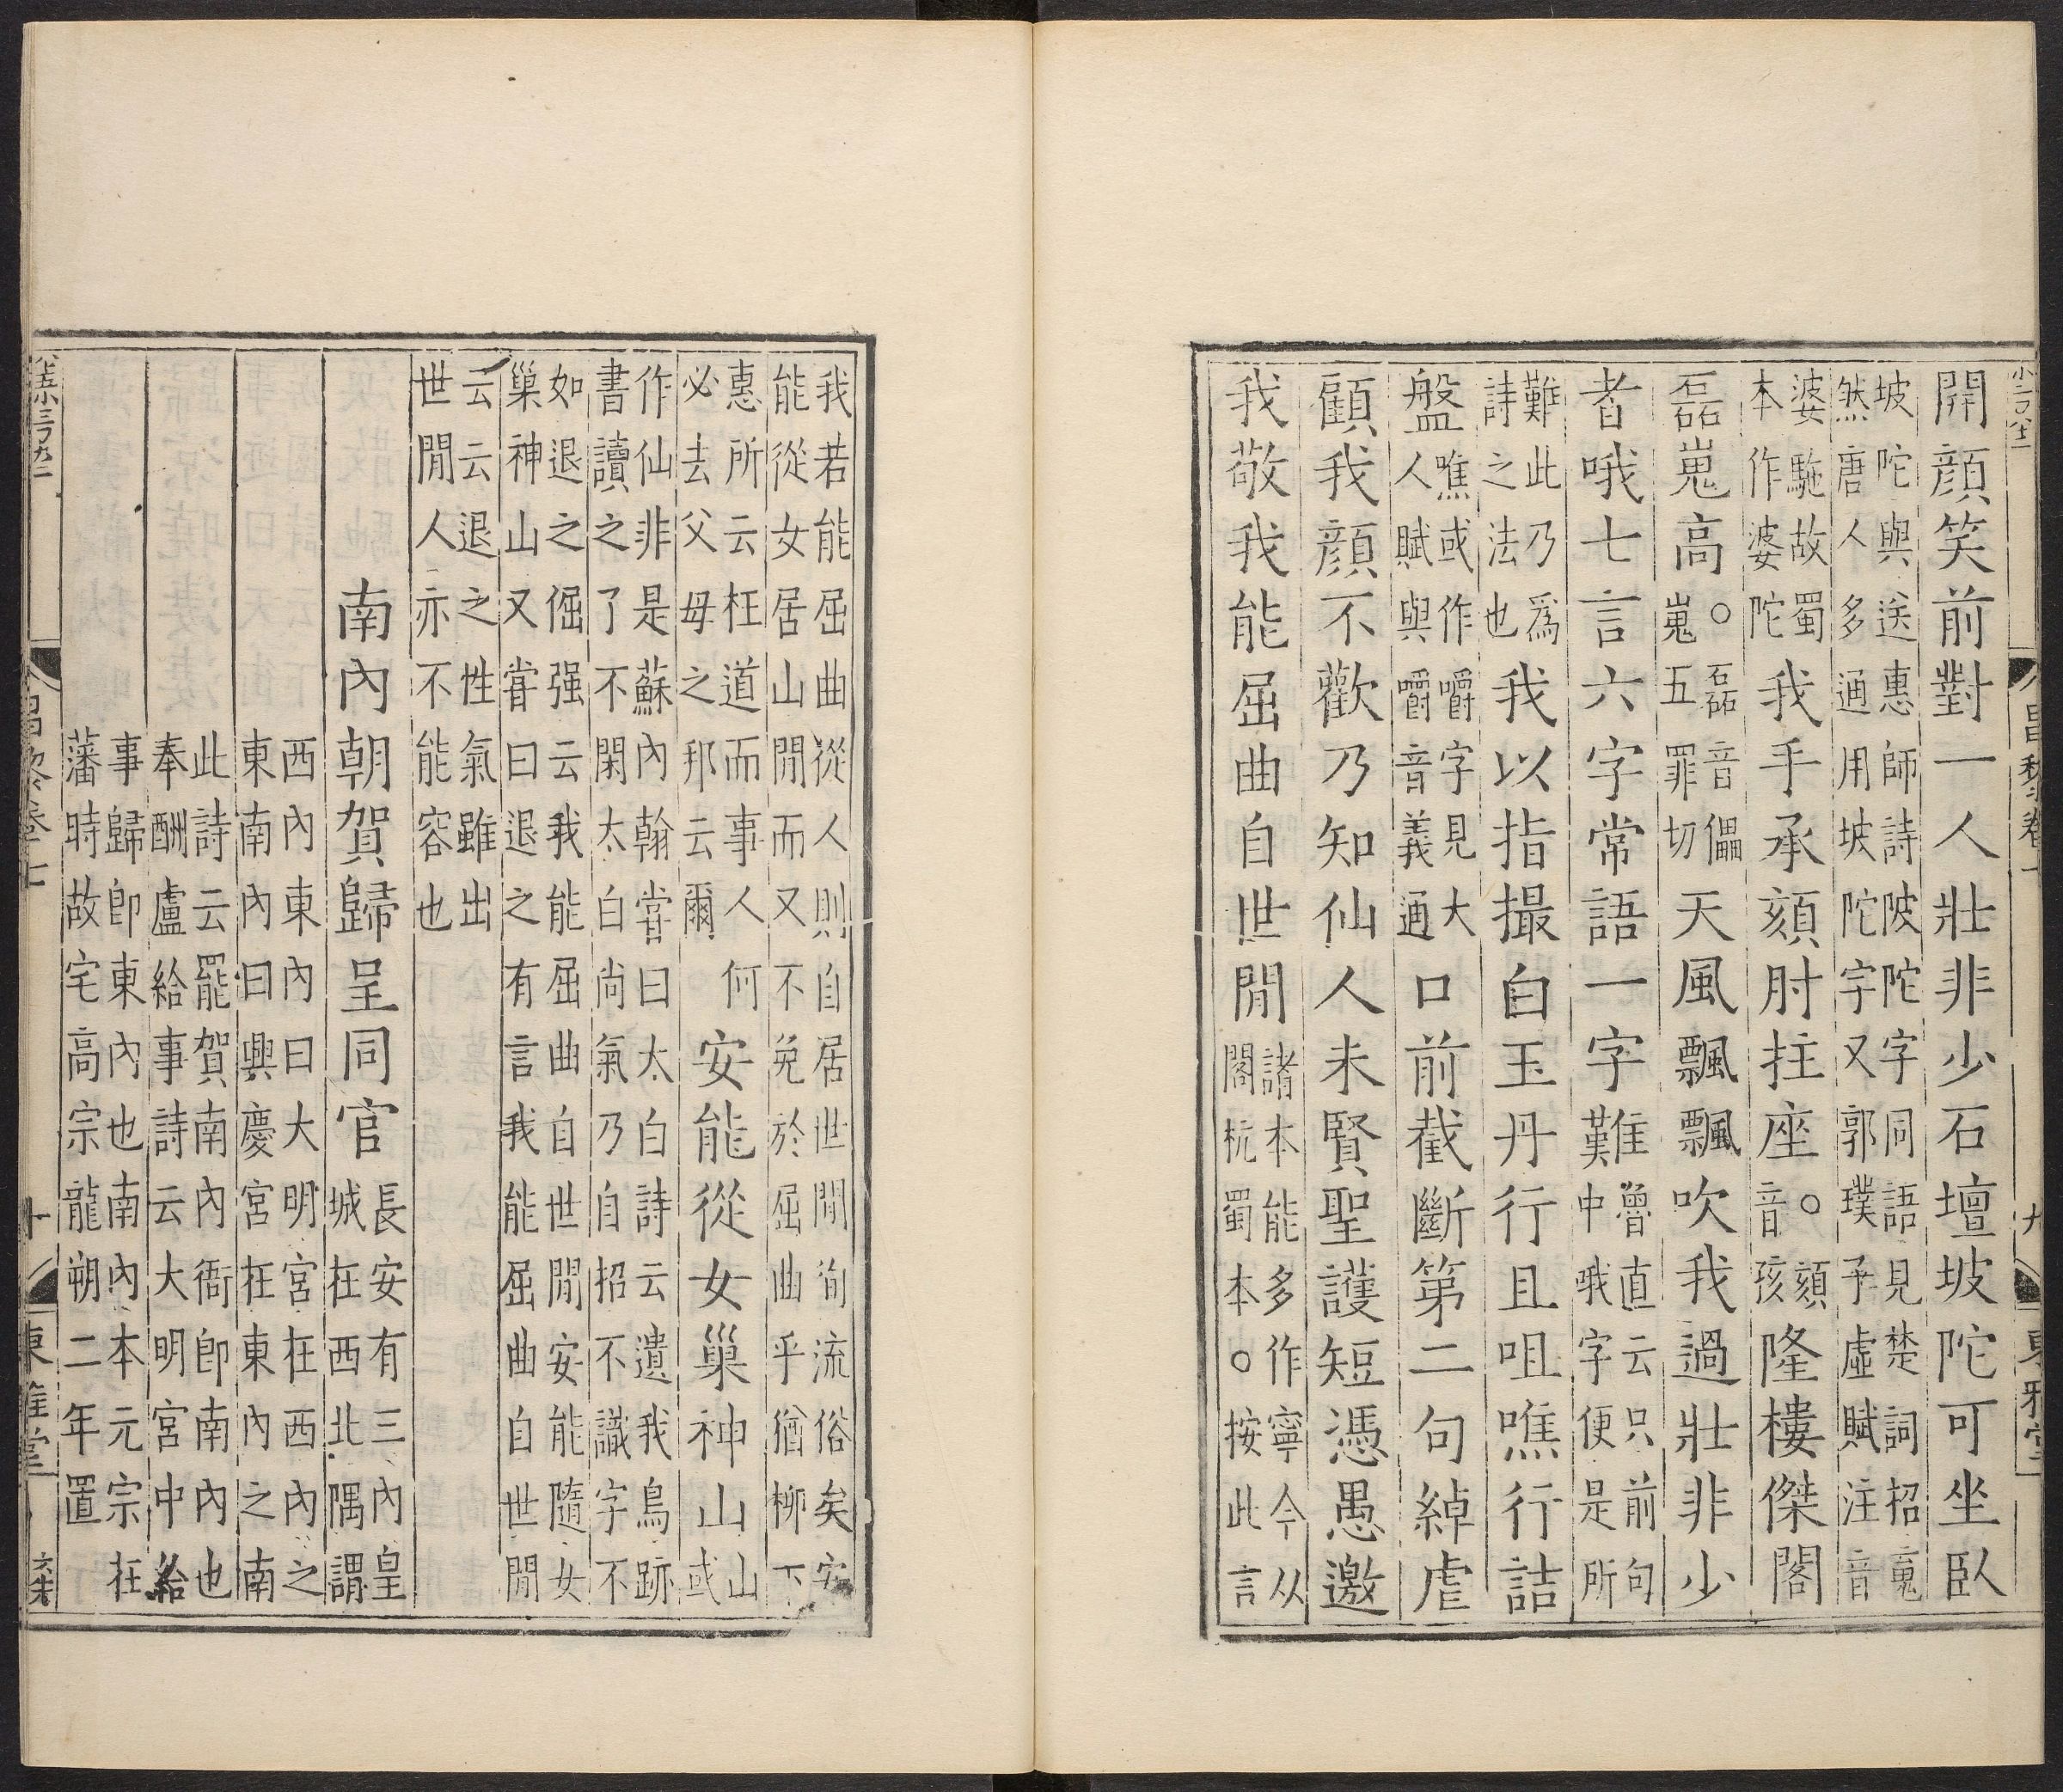 開顏笑前對一人壯非少石壇坡陀可坐臥
坡陀與送惠師詩陂陀字同語見楚詞招䰟
然唐人多通用坡陀字又郭璞子虛賦注音
婆駞故蜀
本作婆陀
我手承頦肘拄座。頦音孩隆樓傑閣
磊嵬高。磊音儡嵬五罪切天風飄飄吹我過壯非少
者哦七言六字常語一字難
魯直云只前句
中哦字便是所
難此乃爲
詩之法也
我以指撮白玉丹行且咀噍行詰
盤噍或作嚼嚼字見大
人賦與嚼音義通
口前截斷第二句綽虐
顧我顏不歡乃知仙人未賢聖護短憑愚邀
我敬我能屈曲自世閒
諸本能多作寧今从
閣杭蜀本。按此言
東雅堂
我若能屈曲從人則自居世閒徇流俗矣安
能從女居山閒而又不免於屈曲乎猶柳下
惠所云枉道而事人何
必去父母之邦云爾
安能從女巢神山山或
作仙非是蘇內翰嘗曰太白詩云遺我鳥跡
書讀之了不閑太白尚氣乃自招不識字不
如退之倔强云我能屈曲自世閒安能隨女
巢神山又嘗曰退之有言我能屈曲自世閒
云云退之性氣雖出
世閒人亦不能容也
南內朝賀歸呈同官
長安有三內皇
城在西北隅謂
西內東內曰大明宮在西內之
東南內曰興慶宮在東內之南
此詩云罷賀南內衙卽南內也
奉酬盧給事詩云大明宮中給
事歸卽東內也南內本元宗在
藩時故宅高宗龍朔二年置
昌黎卷七
十
東雅堂